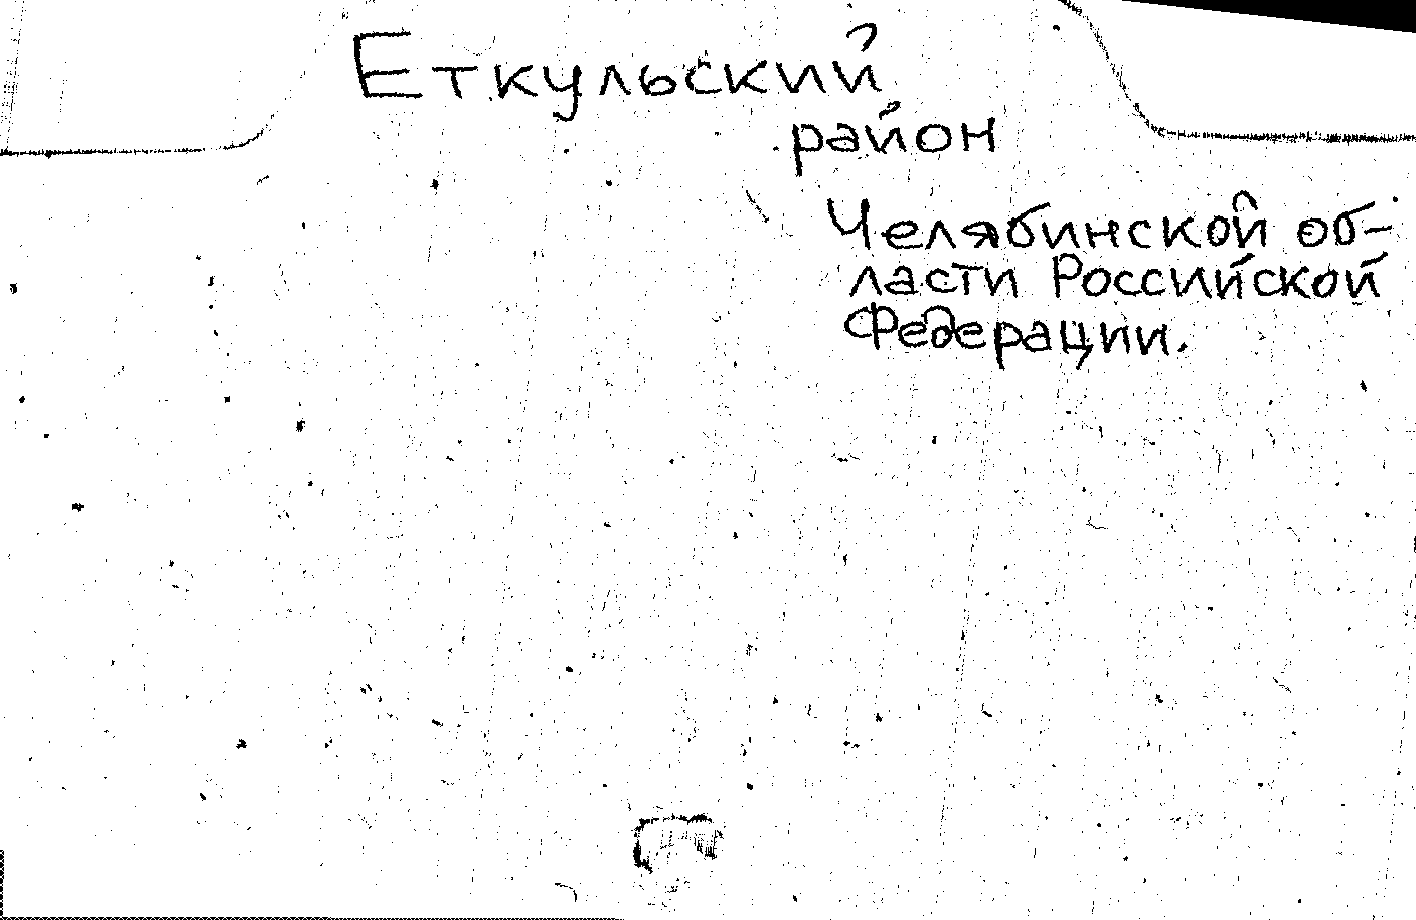 Еткульский
район
Челябинской об-
ласти Российской
Федерации.